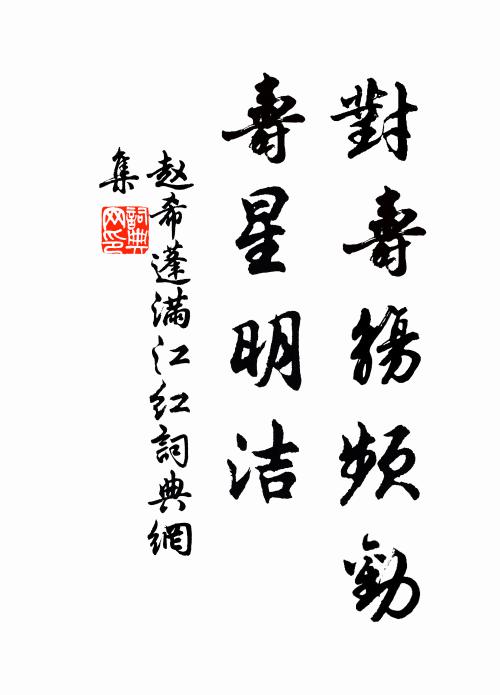 對壽觴頻勸
壽星明洁
赵希蓬滿江红詞典網
集
詞典网印